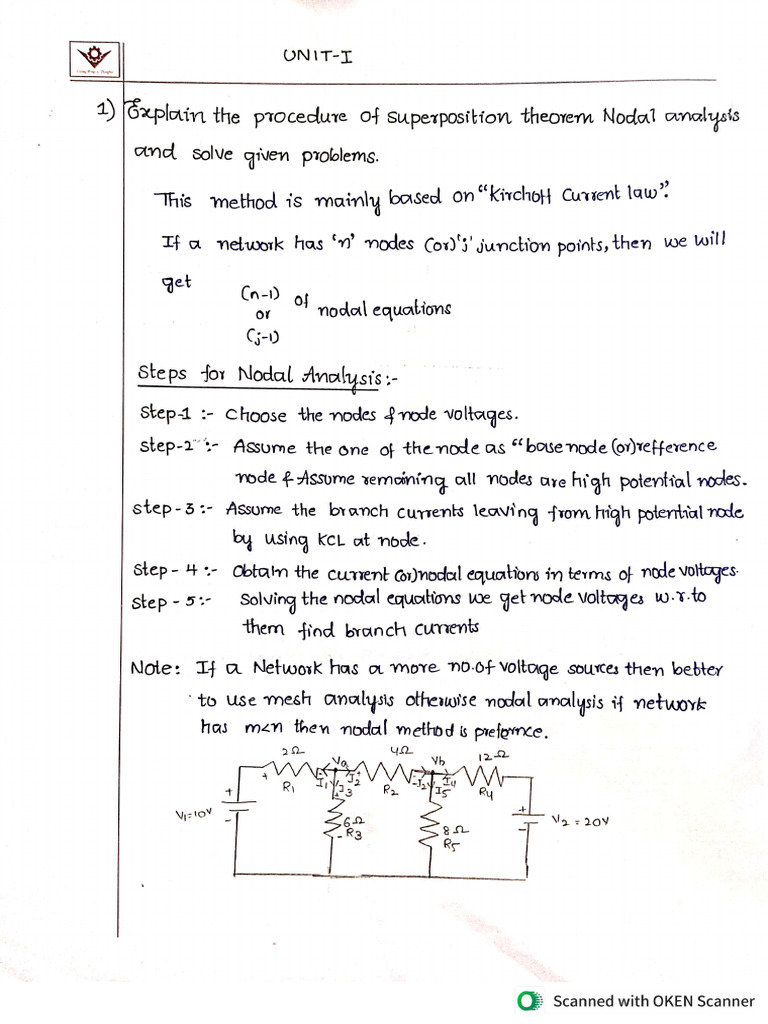 UNIT-I
1) Explain the procedure of superposition theorem Nodal analysis
and solve given problems.
This method is mainly based on "Kirchoff Current law".
If a network has 'n' nodes (or) 'j' junction points, then we will
get
(n-1)
or
(j-1)
of nodal equations
Steps for Nodal Analysis:-
Step-1 :- Choose the nodes & node voltages.
step-2 :- Assume the one of the node as "base node (or) refference
node & Assume remaining all nodes are high potential nodes.
step-3 :- Assume the branch currents leaving from high potential node
by using KCL at node.
step-4 :- Obtain the current (or) nodal equations in terms of node voltages.
step-5:- Solving the nodal equations we get node voltages w.r.to
them find branch currents
Note: If a Network has a more no.of voltage sources then better
to use mesh analysis otherwise nodal analysis if network
has m<n then nodal method is prefernce.
2Ω Va 4Ω Vb 12Ω
+ R1 I1 I3 I2 R2 I2 I5 I4 R4
V1=10V + - 6Ω R3 8Ω R5 + - V2 = 20V
Scanned with OKEN Scanner